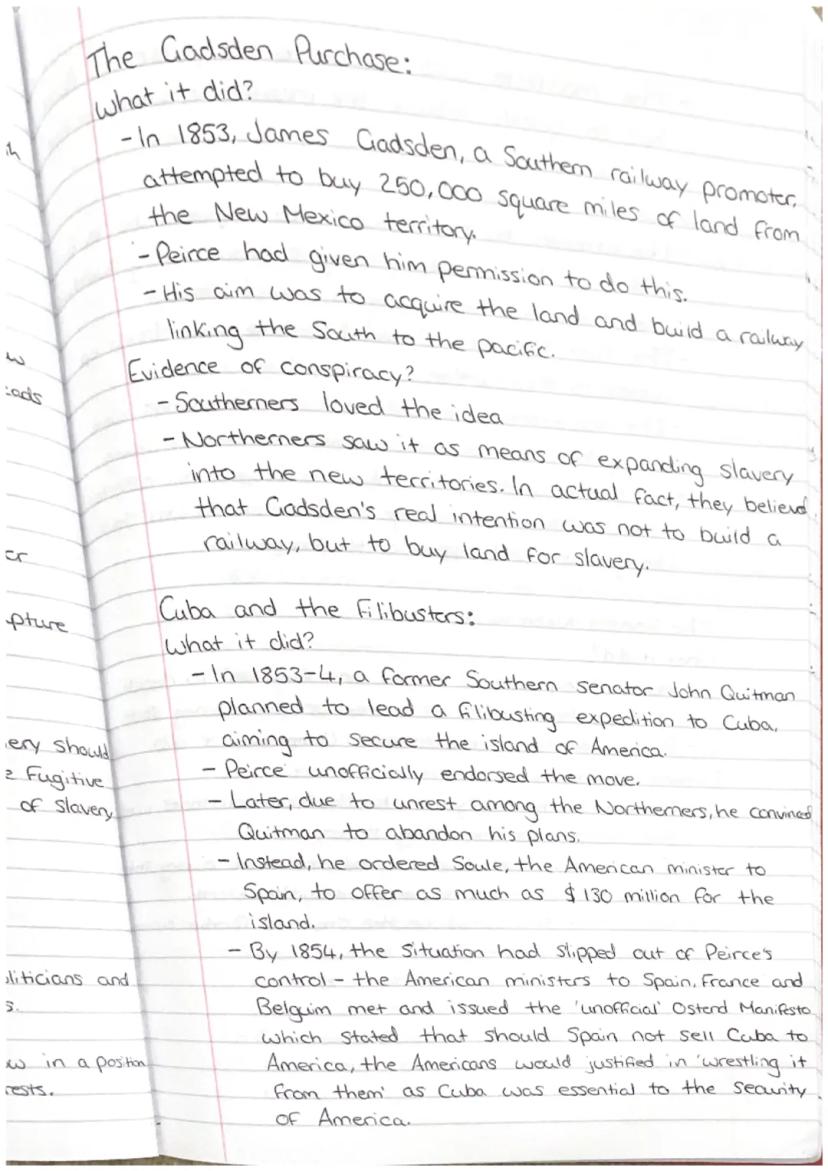 The Gadsden Purchase:
What it did?
- In 1853, James Gadsden, a Southern railway promoter,
attempted to buy 250,000 square miles of land from
the New Mexico territory.
- Peirce had given him permission to do this.
- His aim was to acquire the land and build a railway
linking the South to the pacific.
Evidence of conspiracy?
- Southerners loved the idea
- Northerners saw it as means of expanding slavery
into the new territories. In actual fact, they believd
that Gadsden's real intention was not to build a
railway, but to buy land for slavery.
Cuba and the Filibusters:
What it did?
- In 1853-4, a former Southern senator John Quitman
planned to lead a filibusting expedition to Cuba,
aiming to secure the island of America.
- Peirce unofficially endorsed the move.
- Later, due to unrest among the Northerners, he convined
Quitman to abandon his plans.
- Instead, he ordered Soule, the American minister to
Spain, to offer as much as $130 million for the
island.
- By 1854, the situation had slipped out of Peirce's
control - the American ministers to Spain, France and
Belguim met and issued the 'unofficial' Ostend Manifesto
which stated that should Spain not sell Cuba to
America, the Americans would justified in 'wrestling it
from them' as Cuba was essential to the security
of America.
er
pture
ery should
Fugitive
of slavery
liticians and
s.
w in a position
rests.